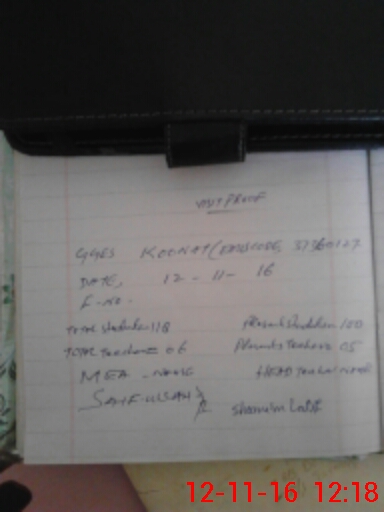 VISIT PROOF
GGES KOONAT (EMISCODE, 37360127
DATE, 12 - 11 - 16
F-NO-
TOTAL Students 118 Presents Students 100
TOTAL Teachers = 06 Presents Teachers 05
MEA - NAME HEAD Teacher name
SAIF-ULLAH
12-11-16 12:18